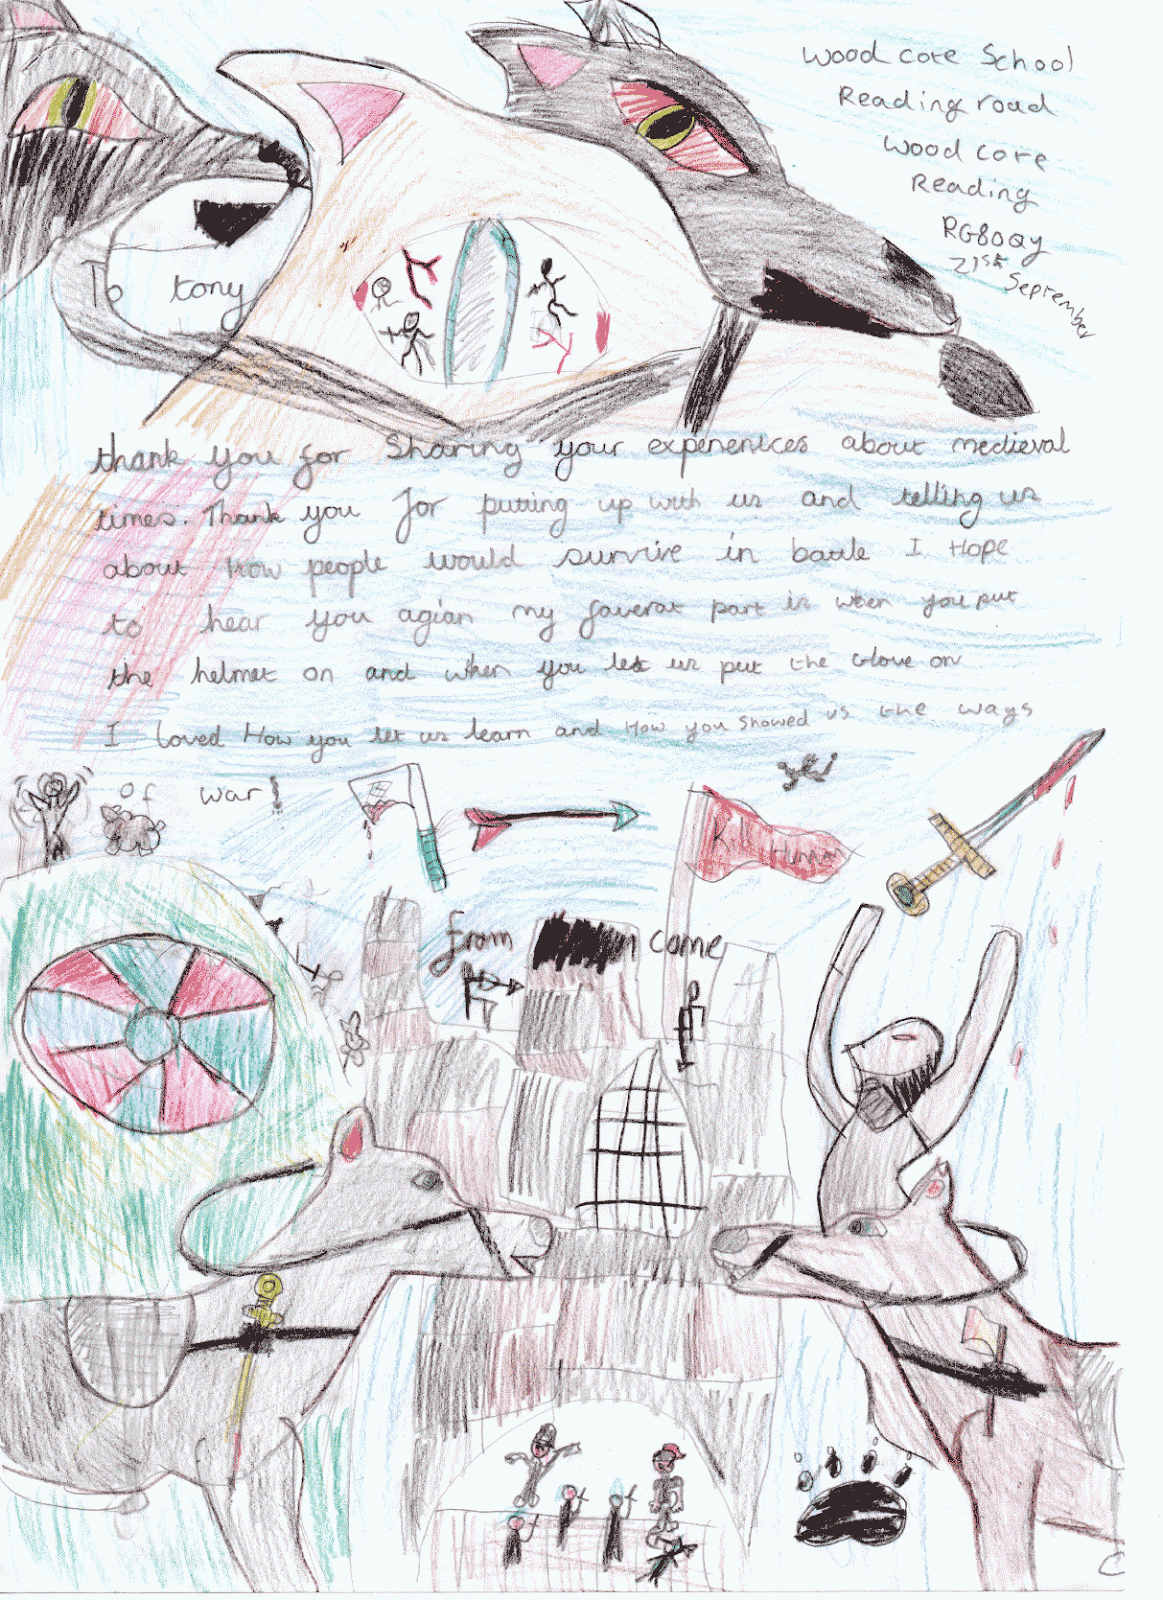 Wood cote School
Reading road
Wood cote
Reading
RG80QY
21st
September
To tony
thank you for Sharing your experiences about medieval
times. Thank you for putting up with us and telling us
about how people would survive in battle I Hope
to hear you agian my faverat part is when you put
the helmet on and when you let us put the Glove on
I loved How you let us learn and How you showed us the ways
of war!
Kill
from come